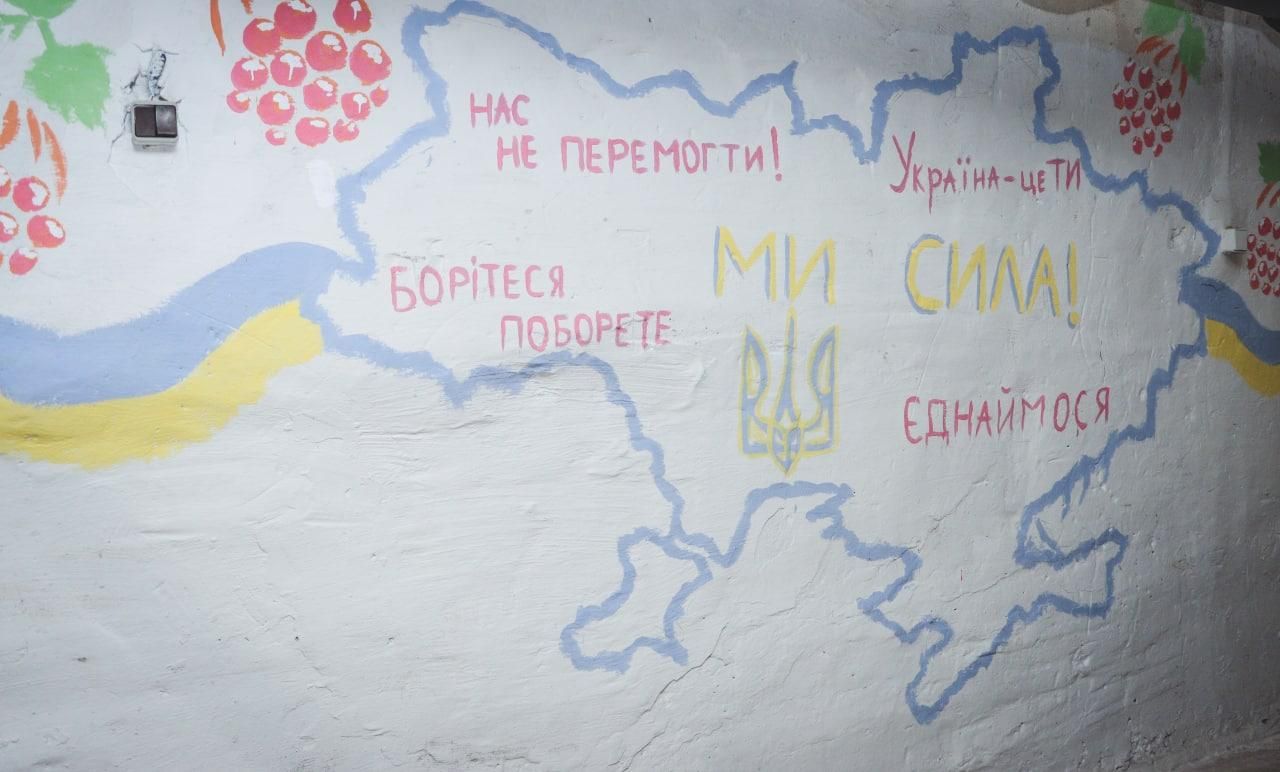 НАС
НЕ ПЕРЕМОГТИ!
Україна-це ти
БОРІТЕСЯ
ПОБОРЕТЕ
МИ СИЛА!
ЄДНАЙМОСЯ